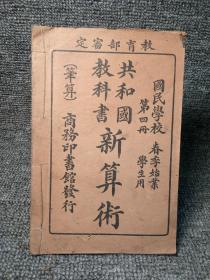 教育部審定
國民學校
春季始業
學生用
第四冊
共和國
教科書
新算術
(筆算)
商務印書館發行